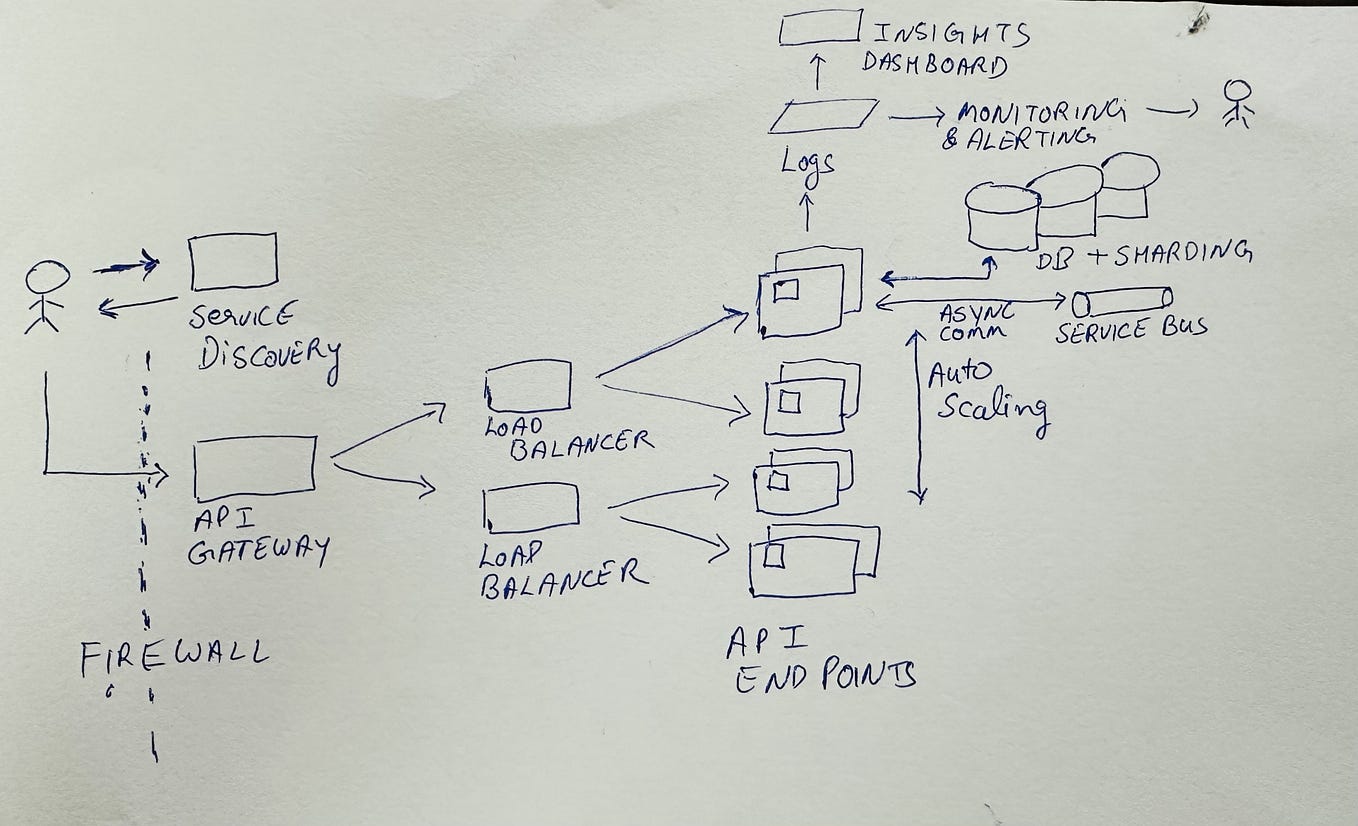 INSIGHTS
DASHBOARD
MONITORING
& ALERTING
Logs
DB + SHARDING
ASYNC
COMM
SERVICE BUS
SERVICE
DISCOVERY
Auto
Scaling
LOAD
BALANCER
API
GATEWAY
LOAD
BALANCER
FIREWALL
API
END POINTS